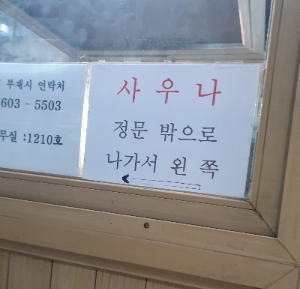 부재시 연락처
603 - 5503
무실 :1210호
사우나
정문 밖으로
나가서 왼 쪽